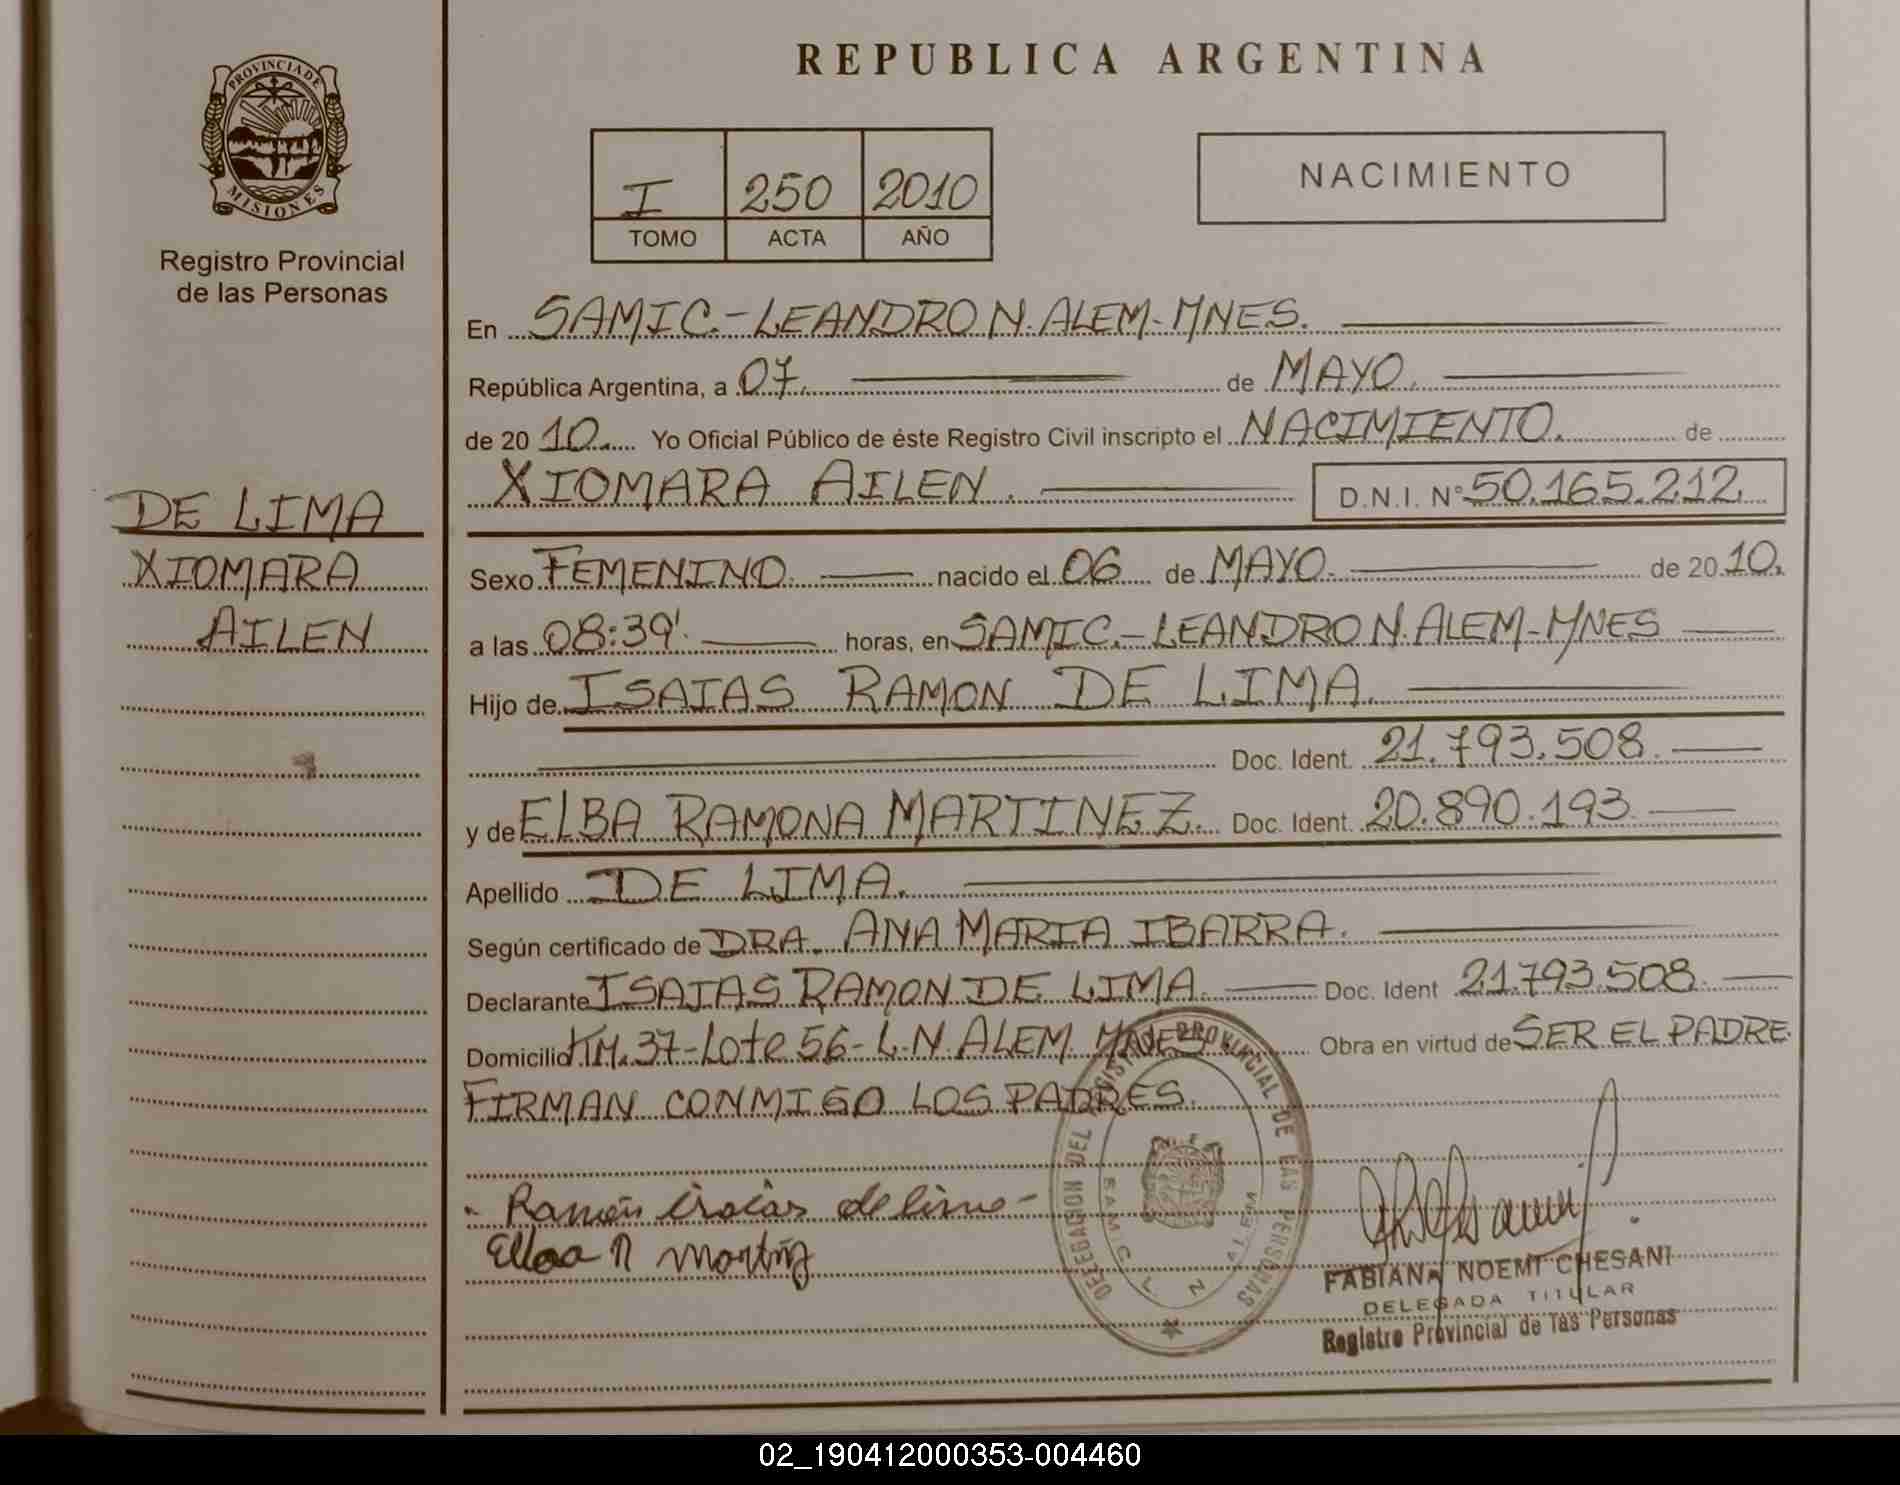 REPUBLICA ARGENTINA
PROVINCIA DE
MISIONES
Registro Provincial
de las Personas
I 250 2010
TOMO ACTA AÑO
NACIMIENTO
En SAMIC.-LEANDRO N. ALEM-MNES.
República Argentina, a 07. de MAYO.
de 20 10. Yo Oficial Público de éste Registro Civil inscripto el NACIMIENTO. de
XIOMARA AILEN. D.N.I. Nº 50.165.212.
DE LIMA
XIOMARA
AILEN
Sexo FEMENINO. nacido el 06 de MAYO. de 20 10.
a las 08:39'. horas, en SAMIC.-LEANDRO N. ALEM-MNES
Hijo de ISAIAS RAMON DE LIMA.
Doc. Ident. 21.793.508.
y de ELBA RAMONA MARTINEZ. Doc. Ident. 20.890.193
Apellido DE LIMA.
Según certificado de DRA. ANA MARIA IBARRA.
Declarante ISAIAS RAMON DE LIMA. Doc. Ident 21.793.508
Domicilio KM.37-Lote 56-L.N.ALEM. MNES Obra en virtud de SER EL PADRE.
FIRMAN CONMIGO LOS PADRES.
DELEGACION DEL REGISTRO PROVINCIAL DE LAS PERSONAS
SAMIC L N ALEM
Ramón isaias de lima
Elba R martinez
FABIANA NOEMI CHESANI
DELEGADA TITULAR
Registro Provincial de las Personas
02_190412000353-004460